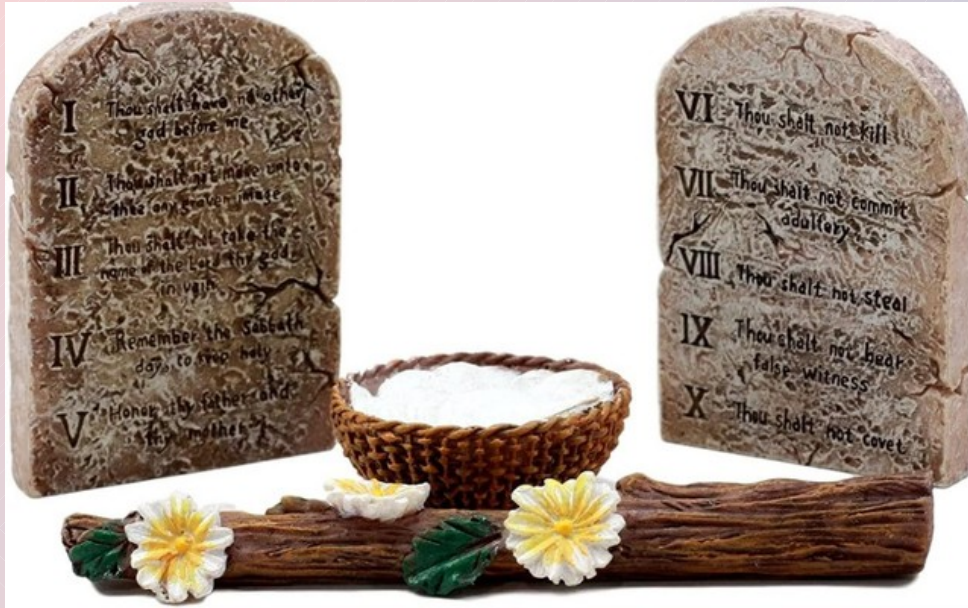 I Thou shalt have no other
god before me
II Thou shalt not make unto
thee any graven image
III Thou shalt not take the
name of the Lord thy god
in vain
IV Remember the Sabbath
day, to keep holy
V Honor thy father and
thy mother
VI Thou shalt not kill
VII Thou shalt not commit
adultery
VIII Thou shalt not steal
IX Thou shalt not bear
false witness
X Thou shalt not covet